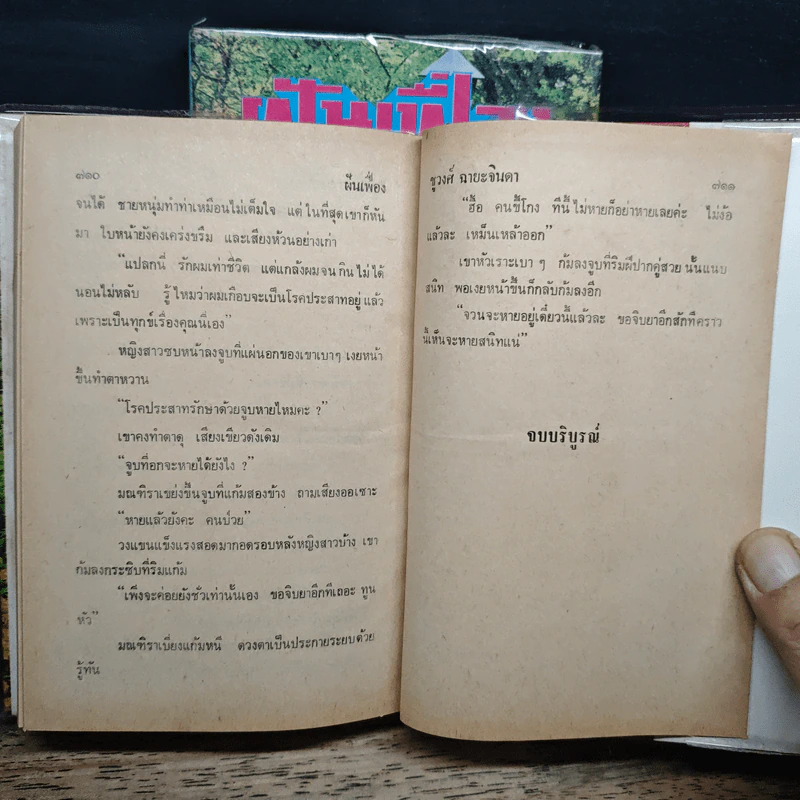 ฝันเฟื่อง
๗๑๐
ฝันเฟื่อง
จนได้ ชายหนุ่มทำท่าเหมือนไม่เต็มใจ แต่ในที่สุดเขาก็หัน
มา ใบหน้ายังคงเคร่งขรึม และเสียงห้วนอย่างเก่า
“แปลกนี่ รักผมเท่าชีวิต แต่แกล้งผมจนกินไม่ได้
นอนไม่หลับ รู้ไหมว่าผมเกือบจะเป็นโรคประสาทอยู่แล้ว
เพราะเป็นทุกข์เรื่องคุณนี่เอง”
หญิงสาวซบหน้าลงจูบที่แผ่นอกของเขาเบาๆ เงยหน้า
ขึ้นทำตาหวาน
“โรคประสาทรักษาด้วยจูบหายไหมคะ ?”
เขาคงทำตาดุ เสียงเขียวดังเดิม
“จูบที่อกจะหายได้ยังไง ?”
มณฑิราเขย่งขึ้นจูบที่แก้มสองข้าง ถามเสียงออเซาะ
“หายแล้วยังคะ คนป่วย”
วงแขนแข็งแรงสอดมากอดรอบหลังหญิงสาวบ้าง เขา
ก้มลงกระซิบที่ริมแก้ม
“เพิ่งจะค่อยยังชั่วเท่านั้นเอง ขอจิบยาอีกทีเถอะ ทูน
หัว”
มณฑิราเบี่ยงแก้มหนี ดวงตาเป็นประกายระยับด้วย
รู้ทัน
ชูวงศ์ ฉายะจินดา
๗๑๑
“ฮื้อ คนขี้โกง ทีนี้ไม่หายก็อย่าหายเลยค่ะ ไม่ง้อ
แล้วละ เหม็นเหล้าออก”
เขาหัวเราะเบา ๆ ก้มลงจูบที่ริมฝีปากคู่สวยนั้นแนบ
สนิท พอเงยหน้าขึ้นก็กลับก้มลงอีก
“จวนจะหายอยู่เดี๋ยวนี้แล้วละ ขอจิบยาอีกสักทีคราว
นี้เห็นจะหายสนิทแน่”
จบบริบูรณ์